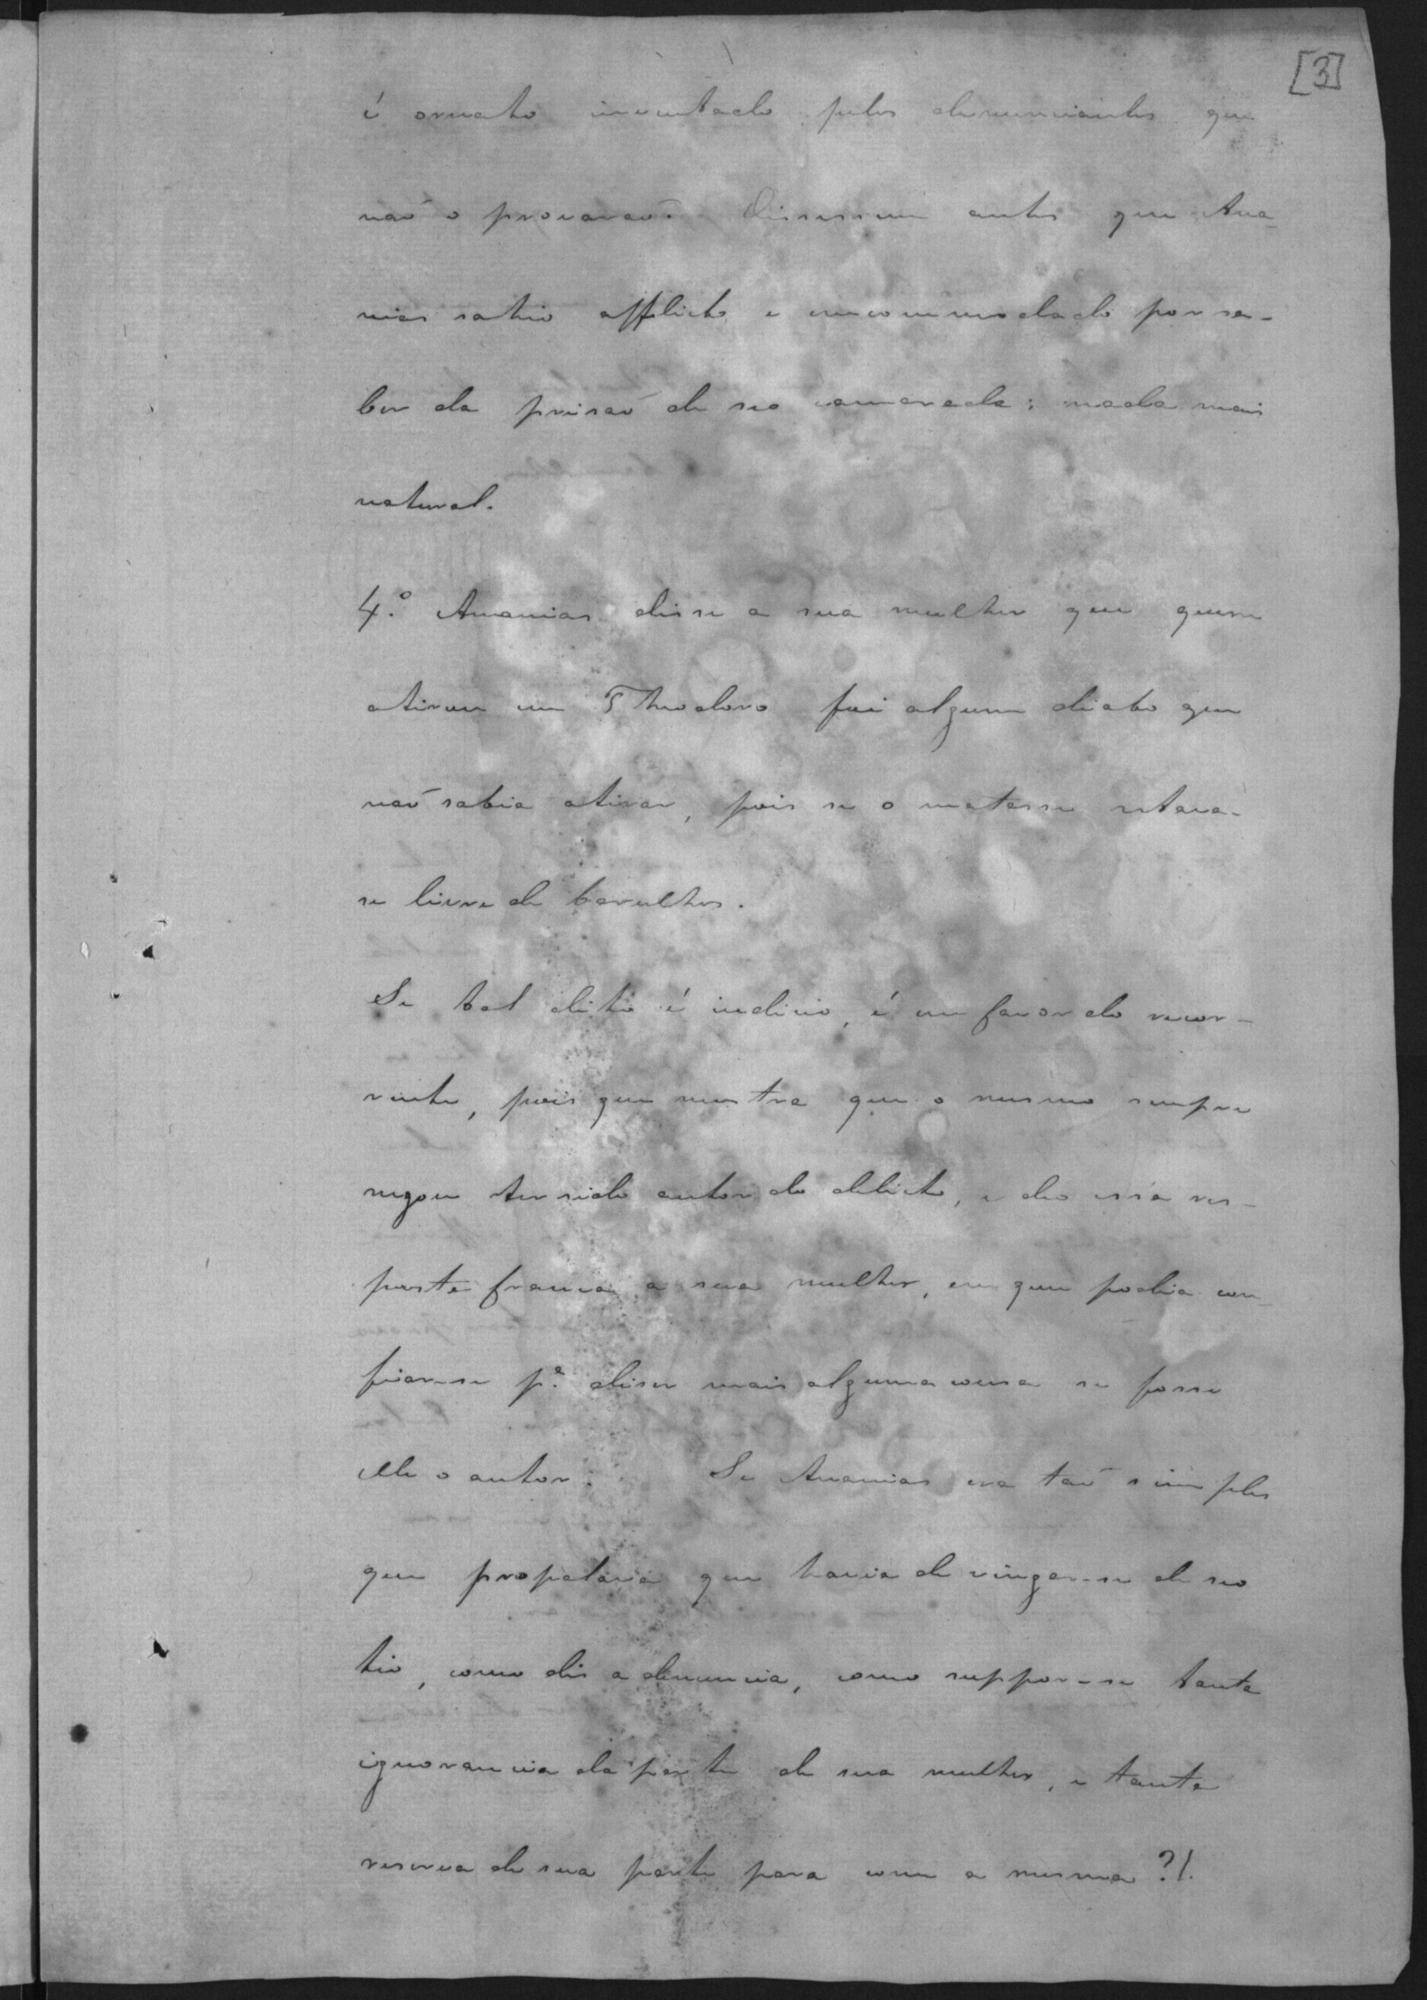 [3]
é ornato inventado pelos denunciantes que
naõ o provaraõ. Dissessem antes que Ana-
nias sahio afflicto e encommodado por sa-
ber da prisaõ de seo camarada: nada mais
natural.
4.º Ananias disse a sua mulher que quem
atirou em Theodoro foi algum diabo que
naõ sabia atirar, pois se o matasse estava-
se livre de barulhos.
Se tal dito é indicio, é em favor do recor-
rente, pois que mostra que o mesmo sempre
negou ter sido autor do delicto, e deo essa res-
posta franca a sua mulher, em quem podia con
fiar-se pª. diser mais alguma cousa se fosse
elle o autor. Se Ananias era taõ simples
que propalava que havia de vingar-se de seo
tio, como dis a denuncia, como suppor-se tanta
ignorancia da parte de sua mulher, e tanta
reserva de sua parte para com a mesma?!.